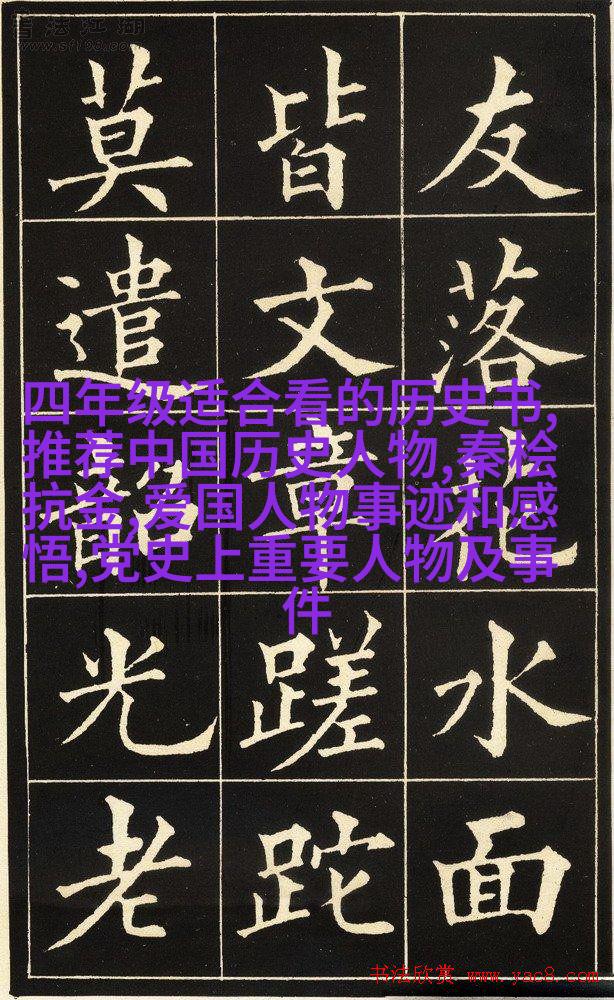 书法江湖
www.sf108.com
友落花水面
皆文章蹉跎
莫遣韶光老
四年级适合看的历史书,
推荐中国历史人物,秦桧
抗金,爱国人物事迹和感
悟,党史上重要人物及事
件
书法欣赏 www.yac8.com